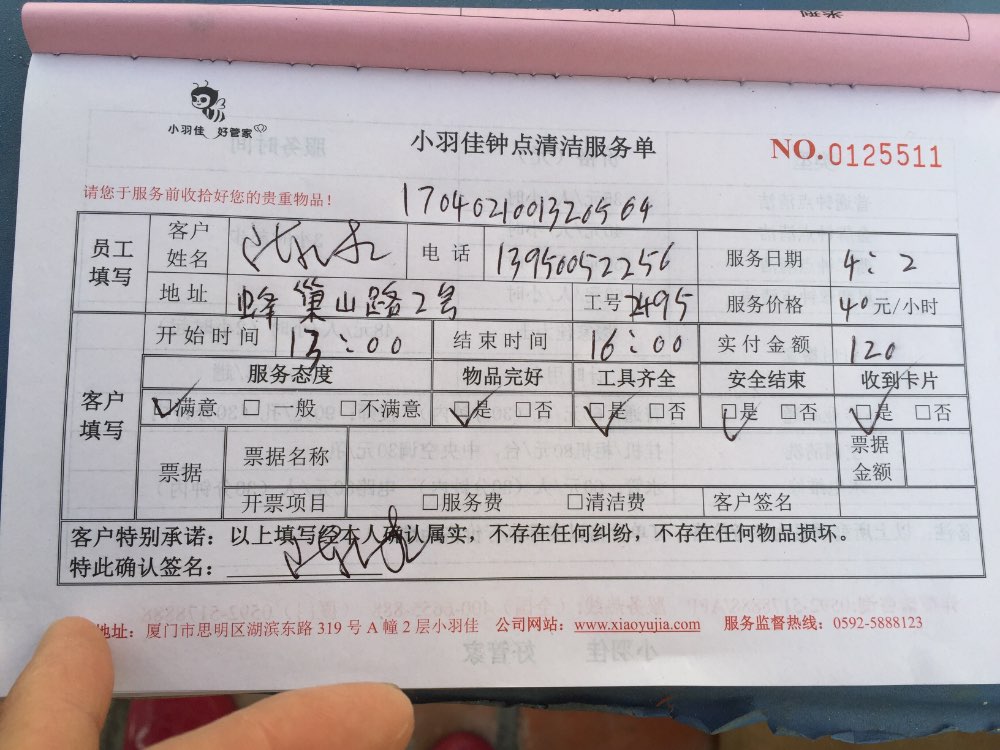 类型
小羽佳 好管家
小羽佳钟点清洁服务单
NO.0125511
请您于服务前收拾好您的贵重物品！
1704021001320564
员工填写 客户姓名 电 话 13950052256 服务日期 4：2
地 址 蜂巢山路2号 工号 2495 服务价格 40元/小时
开始时间 13：00 结束时间 16：00 实付金额 120
客户填写 服务态度 物品完好 工具齐全 安全结束 收到卡片
☑满意 □一般 □不满意 ☑是 □否 ☑是 □否 ☑是 □否 ☑是 □否
票据 票据名称 票据金额
开票项目 □服务费 □清洁费 客户签名
客户特别承诺：以上填写经本人确认属实，不存在任何纠纷，不存在任何物品损坏。
特此确认签名：
地址：厦门市思明区湖滨东路 319 号 A 幢 2 层小羽佳 公司网站：www.xiaoyujia.com 服务监督热线：0592-5888123